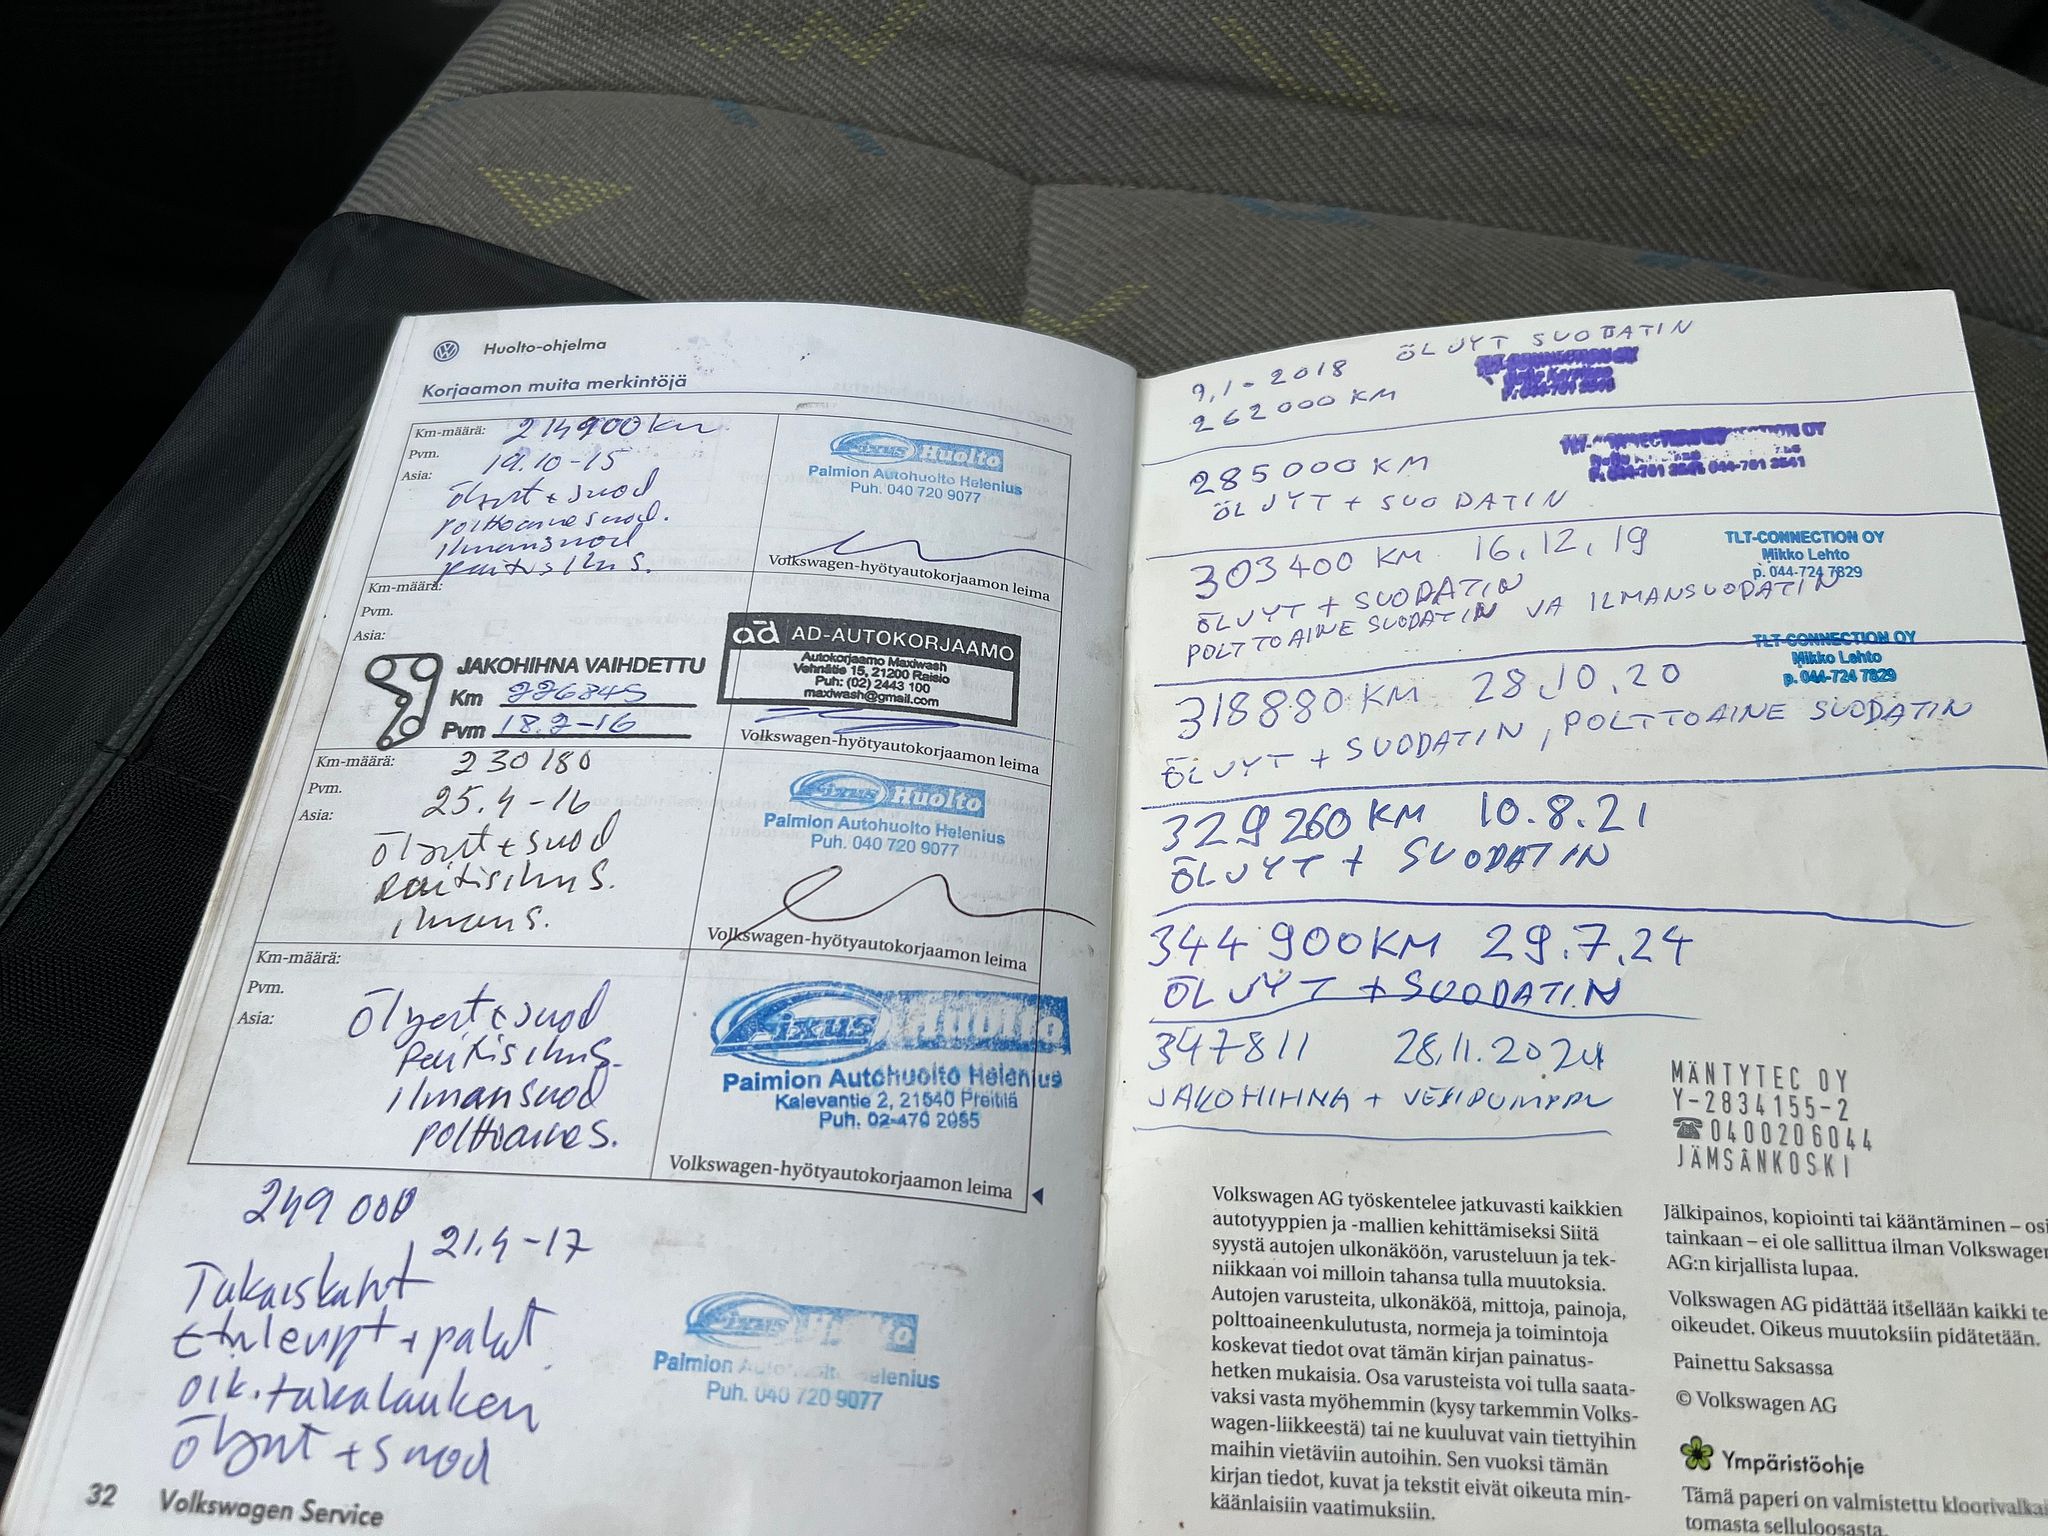 Huolto-ohjelma
Korjaamon muita merkintöjä
Km-määrä: 214900 km
Pvm. 19.10-15
Asia: öljyt + suod
polttoainesuod.
ilmansuod
raitisilm s.
Fixus Huolto
Paimion Autohuolto Helenius
Puh. 040 720 9077
Volkswagen-hyötyautokorjaamon leima
Km-määrä:
Pvm.
Asia:
JAKOHIHNA VAIHDETTU
Km 226845
Pvm 18.2-16
ad AD-AUTOKORJAAMO
Autokorjaamo Maxiwash
Vehnätie 15, 21200 Raisio
Puh: (02) 2443 100
maxiwash@gmail.com
Volkswagen-hyötyautokorjaamon leima
Km-määrä: 230180
Pvm. 25.4-16
Asia: öljyt + suod
raitisilm s.
ilman s.
Fixus Huolto
Paimion Autohuolto Helenius
Puh. 040 720 9077
Volkswagen-hyötyautokorjaamon leima
Km-määrä:
Pvm.
Asia: öljyt + suod
raitisilm s.
ilmansuod
polttoaine s.
Fixus Huolto
Paimion Autohuolto Helenius
Kalevantie 2, 21540 Preitilä
Puh. 02-470 2955
Volkswagen-hyötyautokorjaamon leima
249 000
21.4-17
Takaiskant
etulevyt + palat
oik. takalaakeri
öljyt + suod
Fixus Huolto
Paimion Helenius
Puh. 040 720 9077
32 Volkswagen Service
9.1-2018 ÖLJYT SUODATIN
262000 KM
TLT-CONNECTION OY
285000 KM
ÖLJYT + SUODATIN
TLT-CONNECTION OY
303400 KM 16.12.19
ÖLJYT + SUODATIN
POLTTOAINE SUODATIN JA ILMANSUODATIN
TLT-CONNECTION OY
Mikko Lehto
p. 044-724 7829
318880 KM 28.10.20
ÖLJYT + SUODATIN, POLTTOAINE SUODATIN
TLT-CONNECTION OY
Mikko Lehto
p. 044-724 7829
329260 KM 10.8.21
ÖLJYT + SUODATIN
344 900KM 29.7.24
ÖLJYT + SUODATIN
347811 28.11.2024
JAKOHIHNA + VESIPUMPPU
MÄNTYTEC OY
Y-2834155-2
☎0400206044
JÄMSÄNKOSKI
Volkswagen AG työskentelee jatkuvasti kaikkien
autotyyppien ja -mallien kehittämiseksi Siitä
syystä autojen ulkonäköön, varusteluun ja tek-
niikkaan voi milloin tahansa tulla muutoksia.
Autojen varusteita, ulkonäköä, mittoja, painoja,
polttoaineenkulutusta, normeja ja toimintoja
koskevat tiedot ovat tämän kirjan painatus-
hetken mukaisia. Osa varusteista voi tulla saata-
vaksi vasta myöhemmin (kysy tarkemmin Volks-
wagen-liikkeestä) tai ne kuuluvat vain tiettyihin
maihin vietäviin autoihin. Sen vuoksi tämän
kirjan tiedot, kuvat ja tekstit eivät oikeuta min-
käänlaisiin vaatimuksiin.
Jälkipainos, kopiointi tai kääntäminen – osi
tainkaan – ei ole sallittua ilman Volkswagen
AG:n kirjallista lupaa.
Volkswagen AG pidättää itsellään kaikki te
oikeudet. Oikeus muutoksiin pidätetään.
Painettu Saksassa
© Volkswagen AG
Ympäristöohje
Tämä paperi on valmistettu kloorivalkai
tomasta selluloosasta.